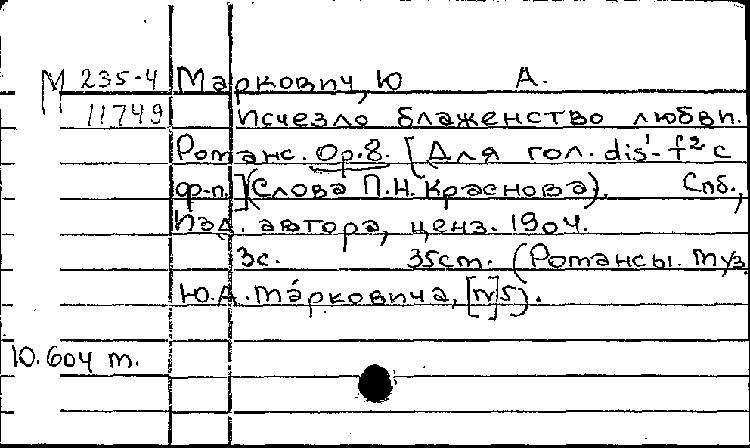 М 235-4 Маркович, Ю А.
11749 Исчезло блаженство любви.
Романс. Ор.8. [Для гол. dis¹-f² с
ф-п.] (Слова П.Н. Краснова). Спб.,
Изд. автора, ценз. 1904.
3с. 35cm. (Романсы. муз.
Ю.А. Марковича, [№5).
10.604 m.